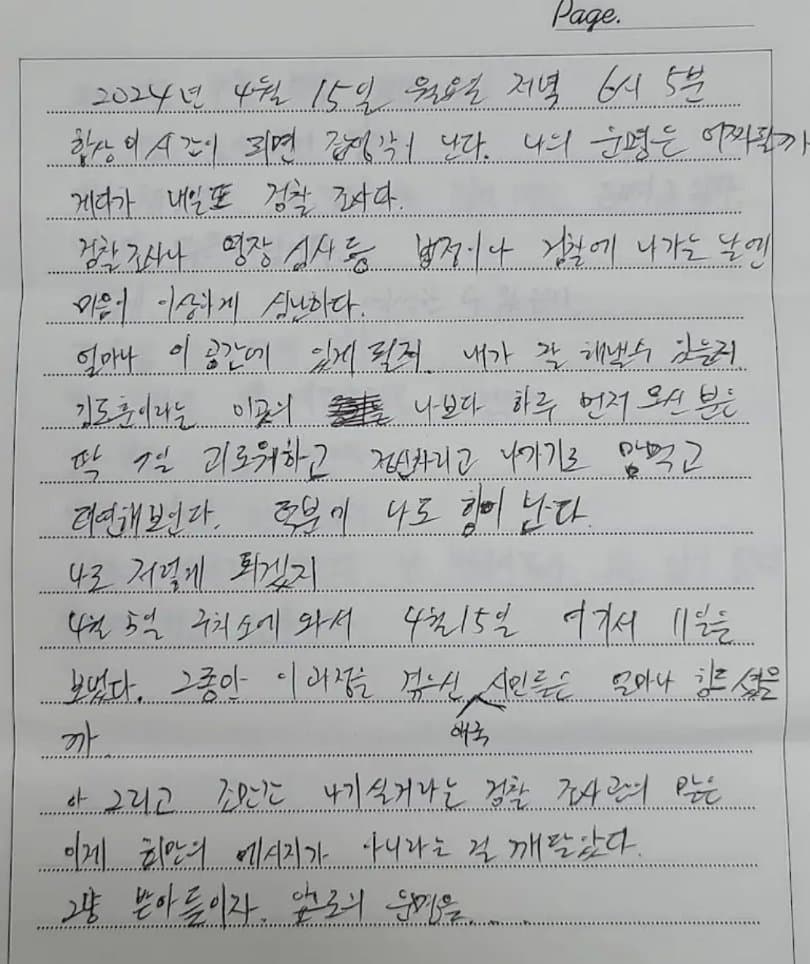 Page.
2024년 4월 15일 월요일 저녁 6시 5분
항상 이 시간이 되면 집생각이 난다. 나의 운명은 어찌될까
게다가 내일또 검찰 조사다.
검찰조사나 영장 심사등 법정이나 검찰에 나가는 날엔
마음이 이상하게 심난하다.
얼마나 이 공간에 있게 될지. 내가 잘 해낼수 있을지.
김도훈이라는 이곳의 나보다 하루 먼저 오신 분은
딱 1일 괴로워하고 정신차리고 나가기로 맘먹고
태연해보인다. 덕분에 나도 힘이 난다.
나도 저렇게 되겠지
4월 5일 구치소에 와서 4월15일 여기서 11일을
보냈다. 그동안 이 과정을 겪으신 애국 시민들은 얼마나 힘드셨을
까
아 그리고 조만간 나가실거라는 검찰 조사관의 말은
이제 희망의 메시지가 아니라는 걸 깨달았다.
그냥 받아들이자. 앞으로의 운명을....